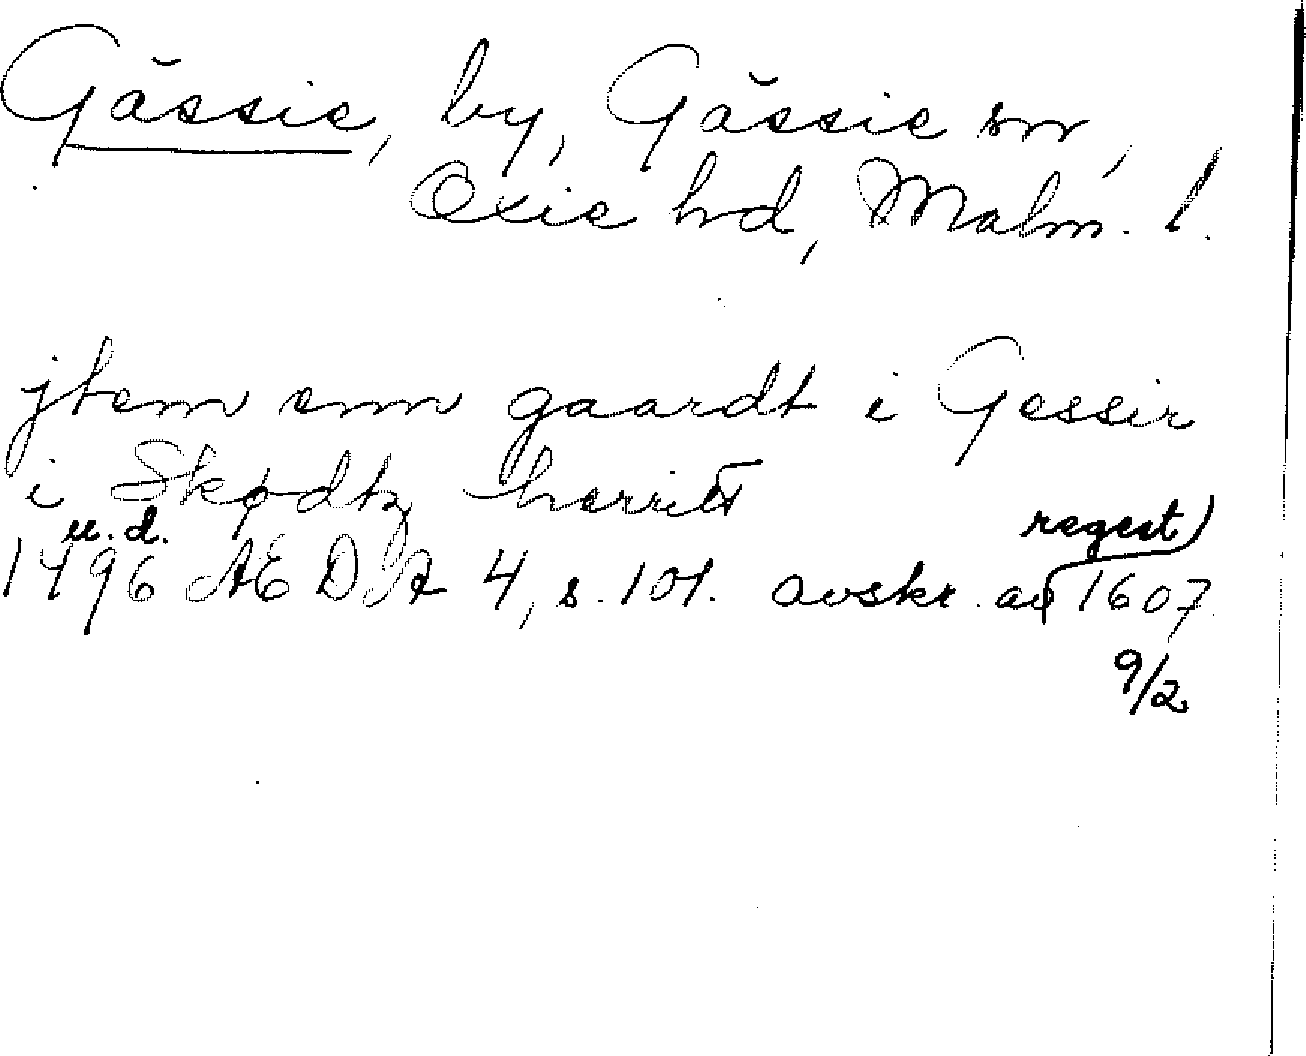 Gässie, by, Gässie sn,
Oxie hd, Malm. l.
jtem enn gaardt i Gessir
i Skødtz herritt
u. d. regest)
1496 ÆDA 4, s. 101. avskr. av 1607.
9/2